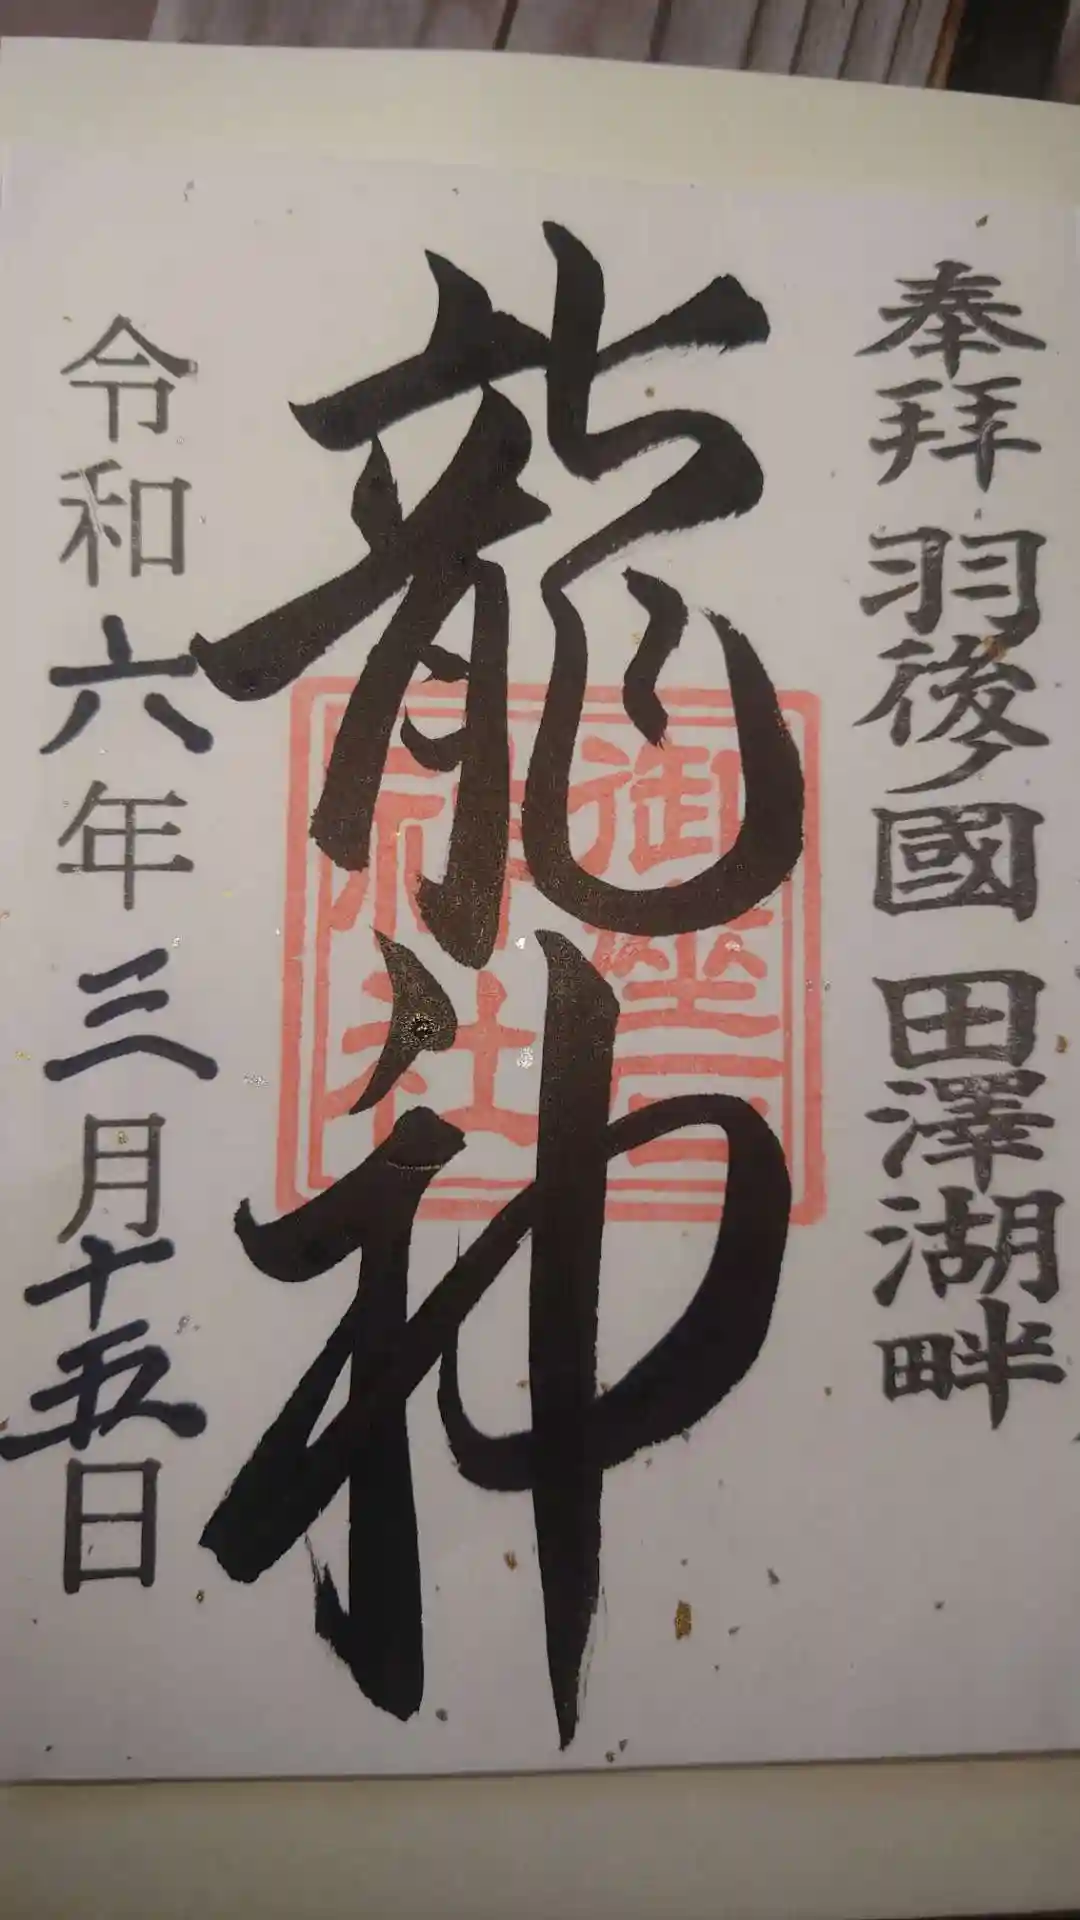 奉拜 羽後國 田澤湖畔
龍神
御座石
神社
令和六年三月十五日